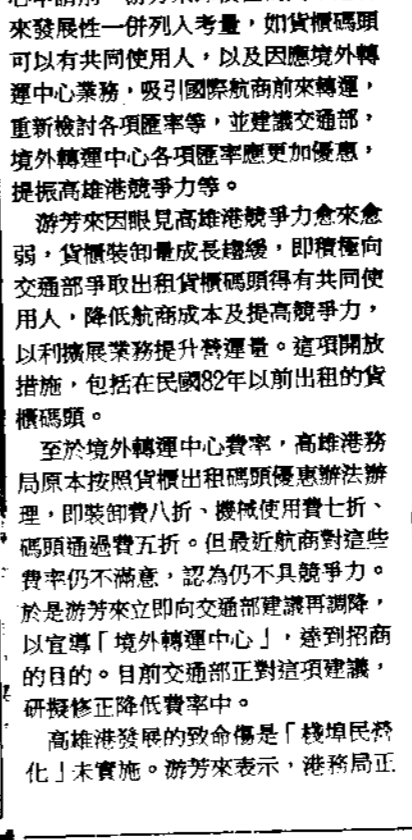 來發展性一併列入考量，如貨櫃碼頭
可以有共同使用人，以及因應境外轉
運中心業務，吸引國際航商前來轉運，
重新檢討各項匯率等，並建議交通部，
境外轉運中心各項匯率應更加優惠，
提振高雄港競爭力等。
游芳來因眼見高雄港競爭力愈來愈
弱，貨櫃裝卸量成長趨緩，即積極向
交通部爭取出租貨櫃碼頭得有共同使
用人，降低航商成本及提高競爭力，
以利擴展業務提升營運量。這項開放
措施，包括在民國82年以前出租的貨
櫃碼頭。
至於境外轉運中心費率，高雄港務
局原本按照貨櫃出租碼頭優惠辦法辦
理，即裝卸費八折、機械使用費七折、
碼頭通過費五折。但最近航商對這些
費率仍不滿意，認為仍不具競爭力。
於是游芳來立即向交通部建議再調降，
以宣導「境外轉運中心」，達到招商
的目的。目前交通部正對這項建議，
研擬修正降低費率中。
高雄港發展的致命傷是「棧埠民營
化」未實施。游芳來表示，港務局正